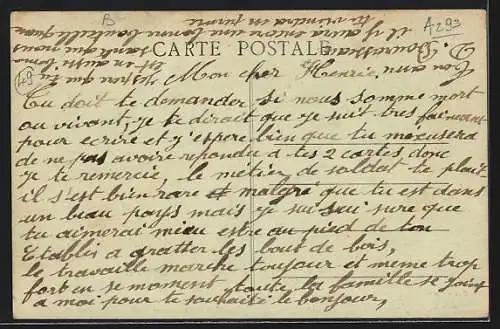 B
A293
49
CARTE POSTALE
Mon cher Henrie,
Tu doit te demander si nous somme mort
ou vivant, je te dirait que je suit tres faineant
pour ecrire et j'espere bien que tu mexusera
de ne pas avoire repondu a tes 2 cartes donc
je te remercie, le métier de soldat te plait
il s'est bien rare et malgré que tu est dans
un beau pays mais je sui sur que
tu aimerai mieu estre au pied de ton
Etablis a gratter les bout de bois,
le travaille marche toujour et meme trop
fort en se moment toute la famille se joint
a moi pour te souhaite le bonjour,
il y aura encore une bonne bouteille